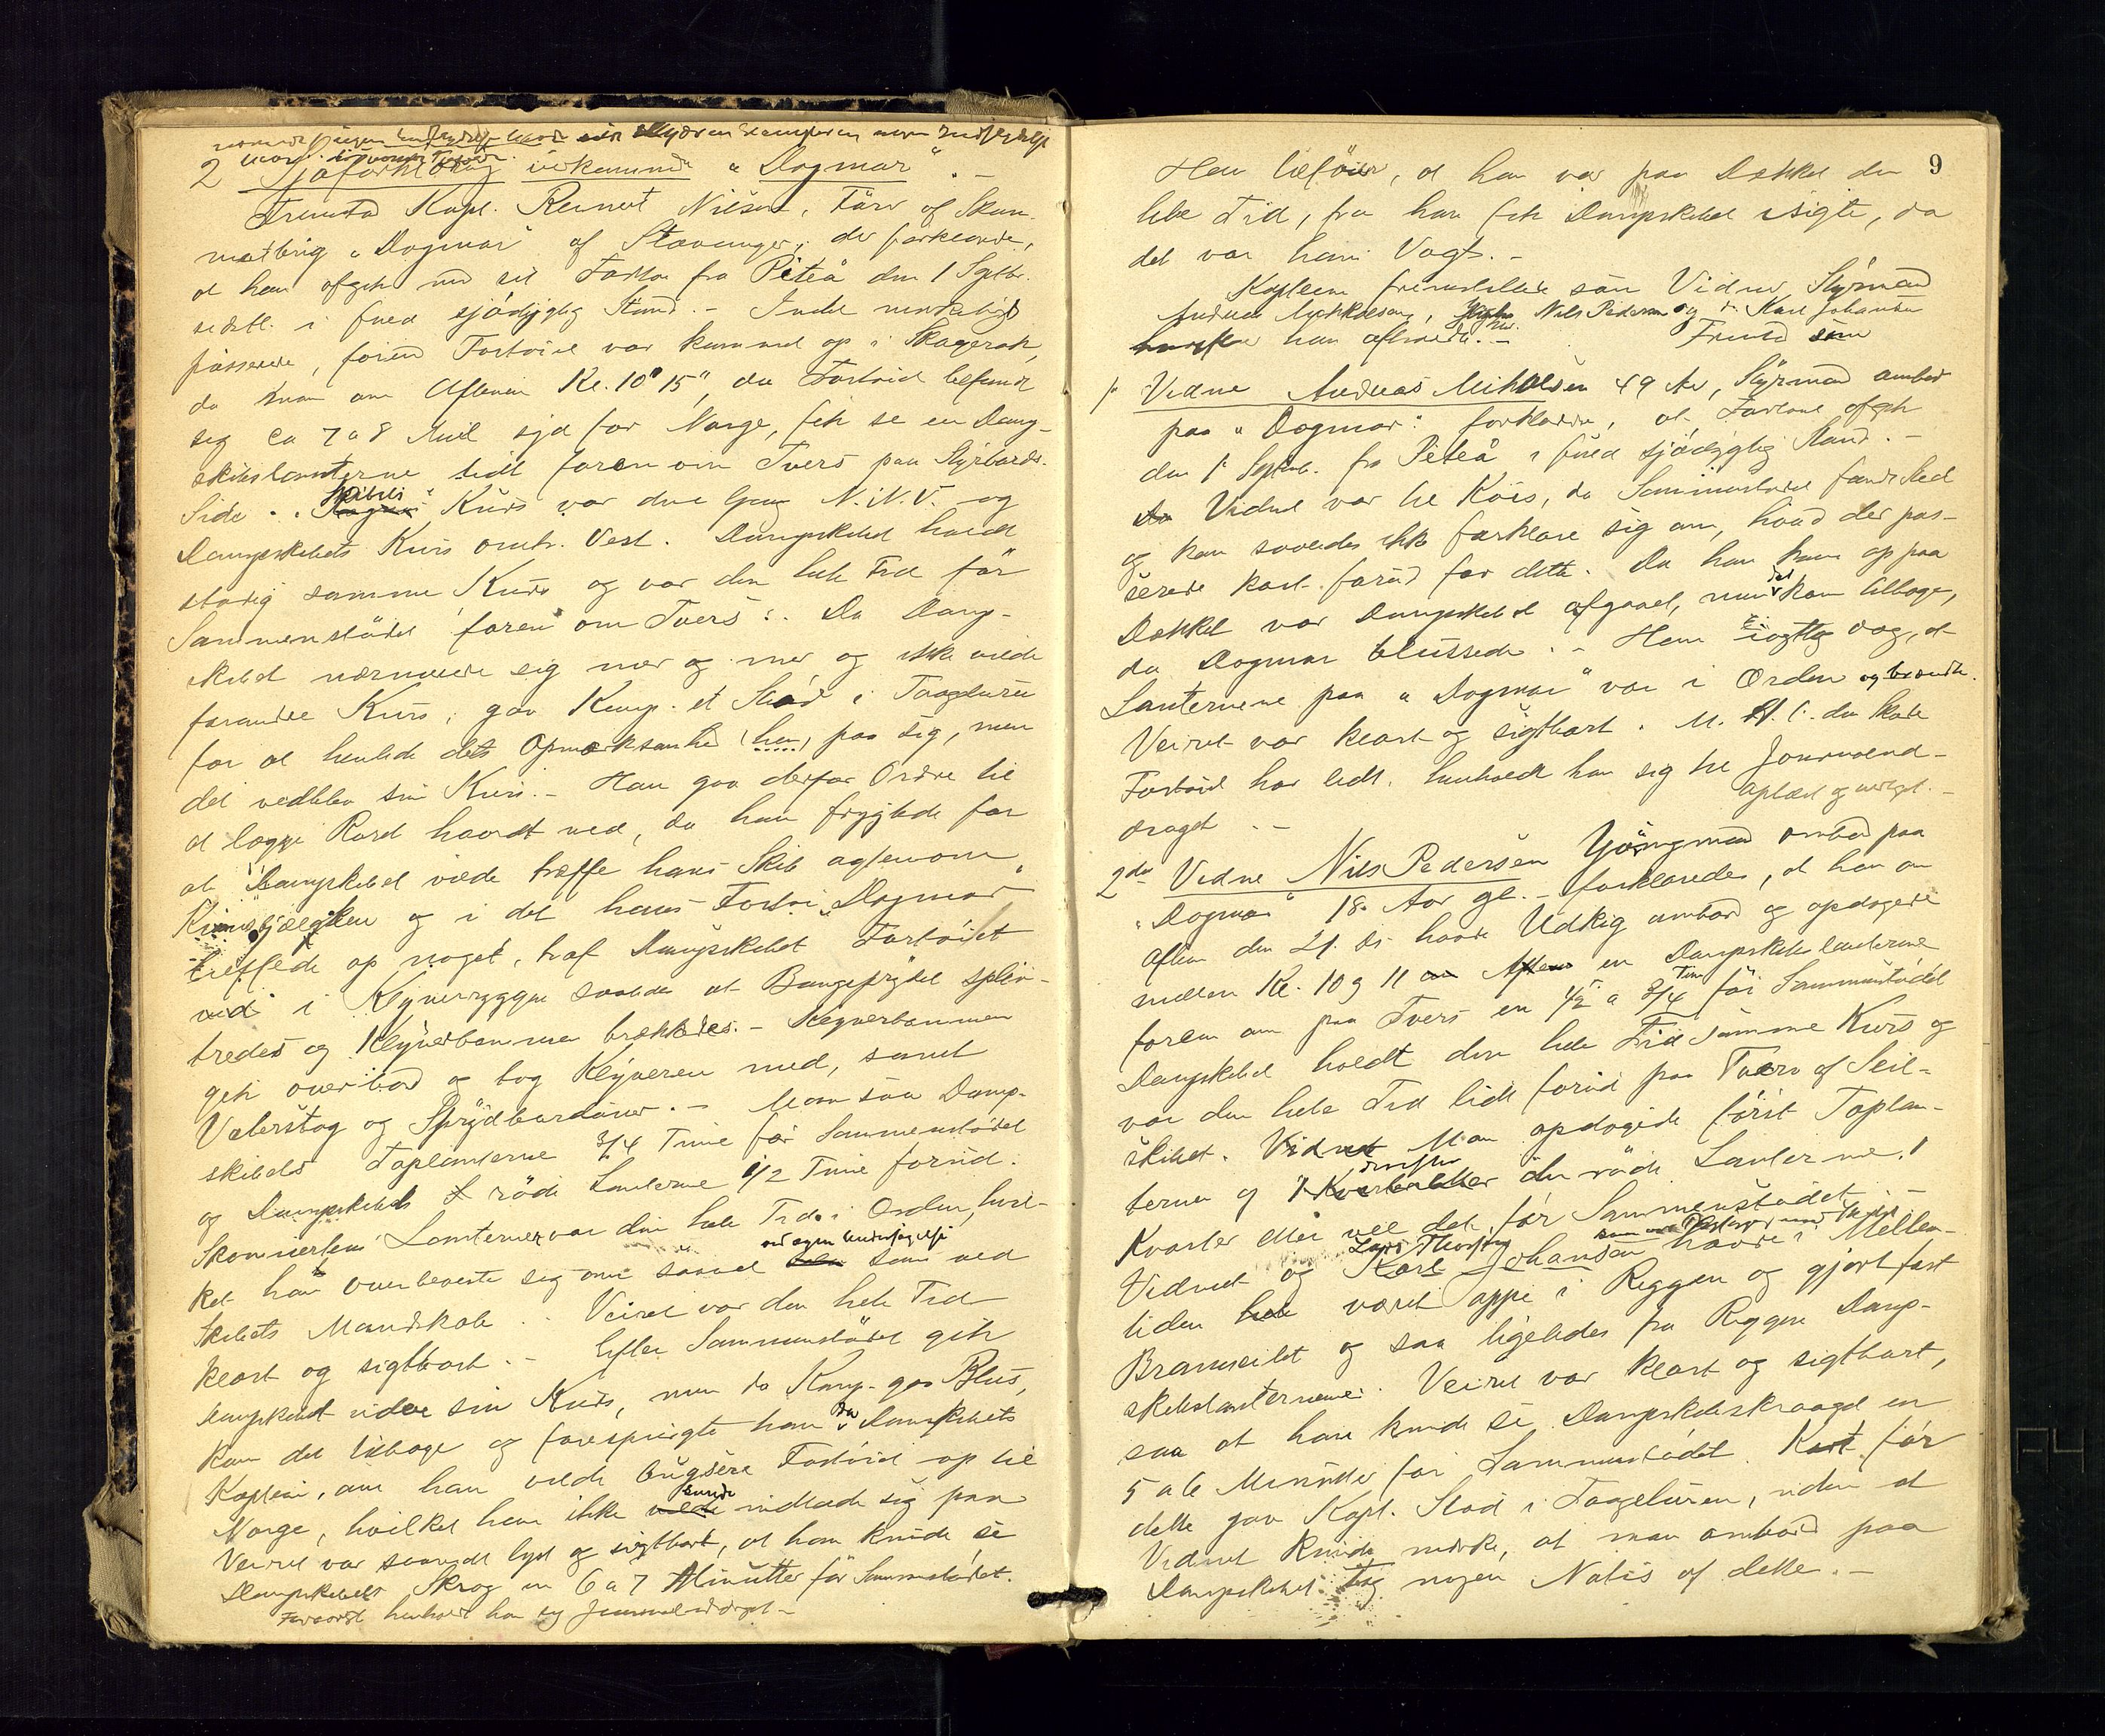 2 Sjøforklaring vedkommende "Dagmar". -
Fremstod Kapt. Reinert Nilsen, Fører af Skon-
nertbrig "Dagmar" af Stavanger, der forklarede,
at han afgik med sit Fartøi fra Piteå den 1 Septbr.
sidstl. i fuld sjødygtig Stand. - Intet merkeligt
passerede, førend Fartøiet var kommet op i Skagerak,
da man om Aftenen Kl. 10 15, da Fartøiet befandt
sig ca 7 a 8 Mil syd for Norge, fik se en Damp-
skibslanterne lidt foren om Tvers paa Styrbords
Side. Skibets Kurs var den Gang N.N.V. og
Dampskibets Kurs omtr. Vest. Dampskibet holdt
stadig samme Kurs og var den hele Tid før
Sammenstødet foren om Tvers. Da Damp-
skibet nærmede sig mer og mer og ikke vilde
forandre Kurs, gav Komp. et Stød i Taagelur
for at henlede dets Opmærksomhed (hen) paa sig, men
det vedblev sin Kurs. - Han gav derfor Ordre til
at lægge Roret haardt ned, da han frygtede for
at Dampskibet vilde træffe hans Skib agtenom
og i det hans Fartøi "Dagmar"
op noget, traf Dampskibet Fartøiet
ved i Klyverrygge saaledes at Baugsprydet splin-
tredes og Klyverbommen brækkedes. - Klyverbommen
gik overbord og tog Klyveren med, samt
Vaterstag og Sprydbarduner. - Man saa Damp-
skibets Toplanterne 3/4 Time før Sammenstødet
og Dampskibets røde Lanterne 1/2 Time forud.
Skonnertens Lanterner var den hele Tid i Orden, hvil-
ket han overbeviste sig om saavel ved egen Undersøgelse som ved
Skibets Mandskab. Veiret var den hele Tid
klart og sigtbart. - Efter Sammenstødet gik
Dampskibet videre sin Kurs, men da Komp. gav Blus,
kom det tilbage og forespurgte han da Dampskibets
Kaptein, om han vilde bugsere Fartøiet op til
Norge, hvilket han ikke kunde indlade sig paa
Veiret var saavidt lyst og sigtbart, at han kunde se
Dampskibets Skrog en 6 a 7 Minutter før Sammenstødet.
Forøvrigt henholdt han sig Journaludraget -
9
Han tilføier, at han var paa Dækket den
hele Tid, fra han fik Dampskibet i sigte, da
det var hans Vagt. -
Kapteinen fremstillede som Vidner Styrmand
Andreas Mikkelsen, Nils Pedersen og Karl Johansen
han afhørte. - Fremstod som
1. Vidne Andreas Mikkelsen 49 Aar, Styrmand ombord
paa "Dagmar" forklarede, at Fartøiet afgik
den 1 Septbr. fra Piteå i fuld sjødygtig Stand. -
Vidnet var til Køis, da Sammenstødet fandt Sted
og kan saaledes ikke forklare sig om, hvad der pas-
serede kort forud for dette. Da han kom op paa
Dækket var Dampskibet afgaaet, men det kom tilbage,
da Dagmar blussede. - Han iagttog dog, at
Lanternene paa "Dagmar" var i Orden og brændte.
Veiret var klart og sigtbart. M.H.t. den Skade
Fartøiet har lidt, henholdt han sig til Journalud-
draget. - oplæst og vedtaget. -
2det Vidne Nils Pedersen Yøngmand ombord paa
"Dagmar" 18 Aar gl. - forklaredes, at han om
Aften den 21. ds havde Udkig ombord og opdagede
mellem Kl. 10 og 11 en Dampskibslanterne
foren om paa Tvers en 1/2 a 3/4 Time før Sammenstødet
Dampskibet holdt den hele Tid samme Kurs og
var den hele Tid lidt forud paa Tvers af Seil-
skibet. Man opdagede først Toplan-
ternen og derefter den røde Lanterne 1
Kvarter eller vel det før Sammenstødet
Vidnet og Lars Thorsen havde i Mellem-
tiden været oppe i Riggen og gjort fast
Bramseilet og saa ligeledes fra Riggen Damp-
skibslanternene. Veiret var klart og sigtbart,
saa at han kunde se Dampskibsskroget en
5 a 6 Minutter før Sammenstødet. Kort før
dette gav Kapt. Stød i Taageluren, uden at
Vidnet kunde merke, at man ombord paa
Dampskibet tog nogen Notis af dette. -